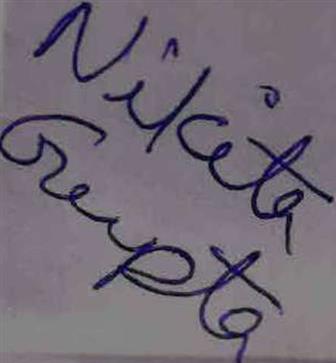 Nikita
Gupta